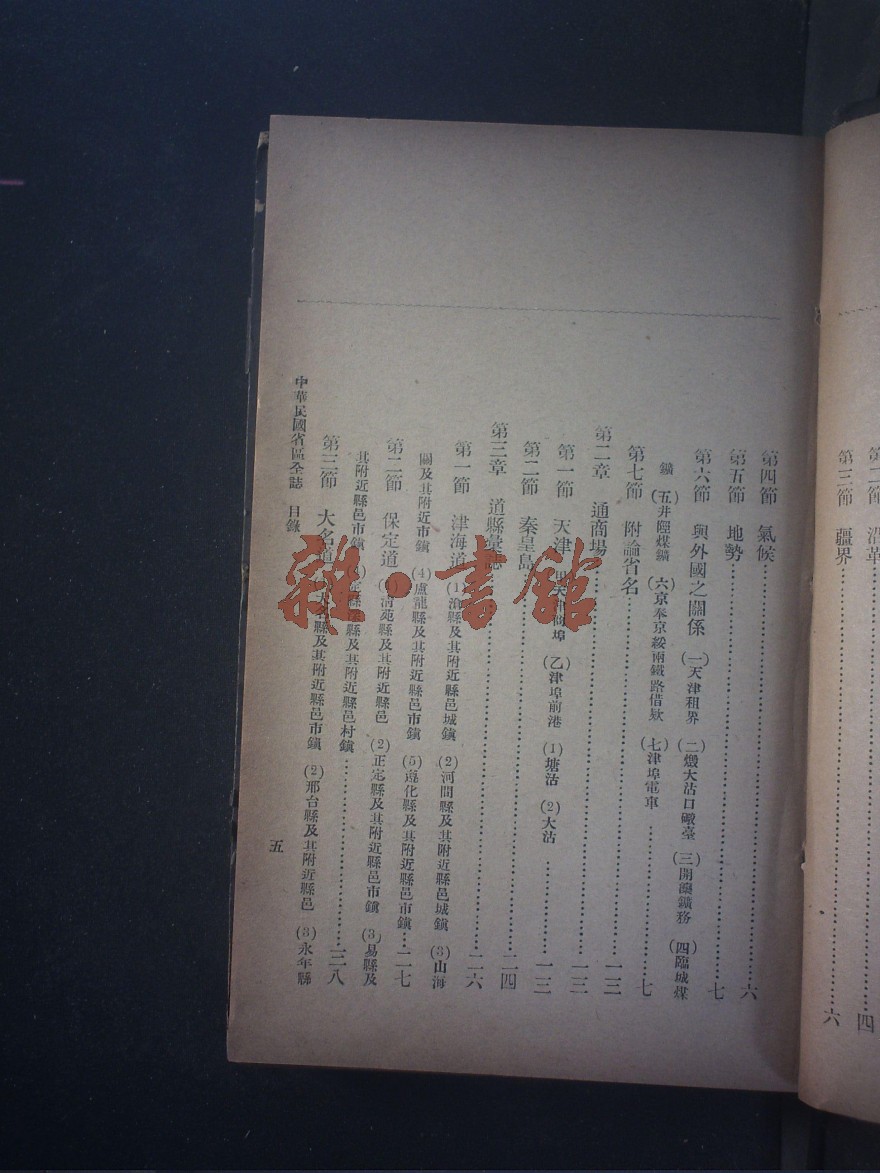 第二節 沿革 四
第三節 疆界 六
第四節 氣候 六
第五節 地勢 七
第六節 與外國之關係 (一)天津租界 (二)燬大沽口礮臺 (三)開灤鑛務 (四)臨城煤
鑛 (五)井陘煤鑛 (六)京奉京綏兩鐵路借欵 (七)津埠電車
第七節 附論省名 七
第二章 通商場 一三
第一節 天津 商埠 (乙)津埠前港 (1)塘沽 (2)大沽 一三
第二節 秦皇島
第三章 道縣彙誌 二四
第一節 津海道 (1)滄縣及其附近縣邑城鎭 (2)河間縣及其附近縣邑城鎭 (3)山海
關及其附近市鎭 (4)盧龍縣及其附近縣邑市鎭 (5)遵化縣及其附近縣邑市鎭 二七
第二節 保定道 清苑縣及其附近縣邑 (2)正定縣及其附近縣邑市鎭 (3)易縣及
其附近縣邑市鎭 縣及其附近縣邑村鎭 三八
第三節 大名道 縣及其附近縣邑市鎭 (2)邢台縣及其附近縣邑 (3)永年縣
中華民國省區全誌 目錄
五
雜·書館